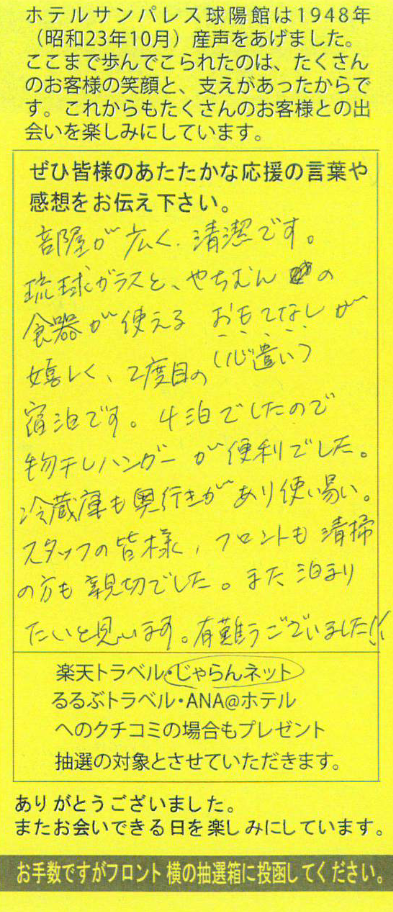 ホテルサンパレス球陽館は1948年
（昭和23年10月）産声をあげました。
ここまで歩んでこられたのは、たくさん
のお客様の笑顔と、支えがあったからで
す。これからもたくさんのお客様との出
会いを楽しみにしています。
ぜひ皆様のあたたかな応援の言葉や
感想をお伝え下さい。
部屋が広く、清潔です。
琉球ガラスと、やちむんの
食器が使えるおもてなしが
(心遣い)
嬉しく、2度目の
宿泊です。4泊でしたので
物干しハンガーが便利でした。
冷蔵庫も奥行きがあり使い易い。
スタッフの皆様、フロントも清掃
の方も親切でした。また泊まり
たいと思います。有難うございました!!
楽天トラベル・じゃらんネット
るるぶトラベル・ANA@ホテル
へのクチコミの場合もプレゼント
抽選の対象とさせていただきます。
ありがとうございました。
またお会いできる日を楽しみにしています。
お手数ですがフロント横の抽選箱に投函してください。